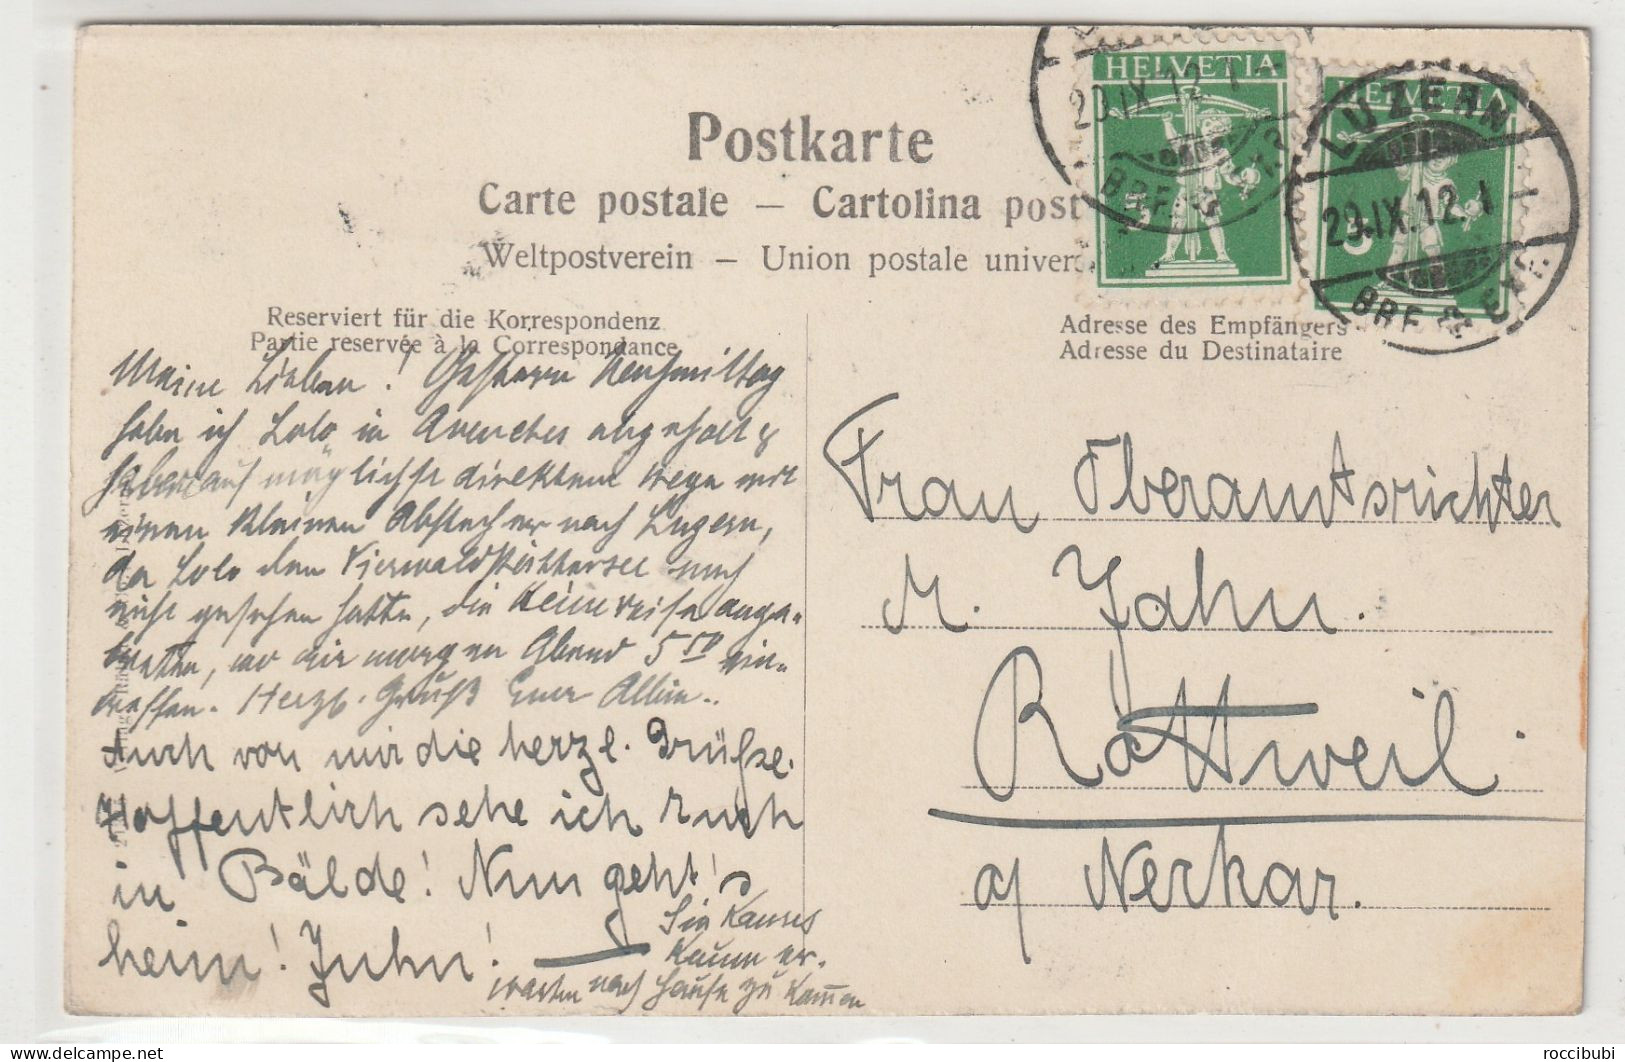 HELVETIA
HELVETIA
20.IX.12.
LUZERN
20.IX.12.
BRF.
BRF.
Postkarte
Carte postale — Cartolina post
Weltpostverein — Union postale univers
Reserviert für die Korrespondenz
Partie reservée à la Correspondance
Adresse des Empfängers
Adresse du Destinataire
Meine Lieben! Gestern Nachmittag
habe ich Lolo in Avenches abgeholt &
haben auf möglichst direktem Wege mit
einem kleinen Abstecher nach Luzern,
da Lolo den Vierwaldstättersee noch
nicht gesehen hatte, die Heimreise ange-
treten, wo wir morgen Abend 5 50 ein-
treffen. Herzl. Gruß Euer
Auch von mir die herzl. Grüße.
Hoffentlich sehe ich Euch
in Bälde! Nun geht's
heim! Juhu!
Sie
kaum er-
warten nach Hause zu kommen
Frau Oberamtsrichter
M. Jahn.
Rottweil.
a/ Neckar.
roccibubi